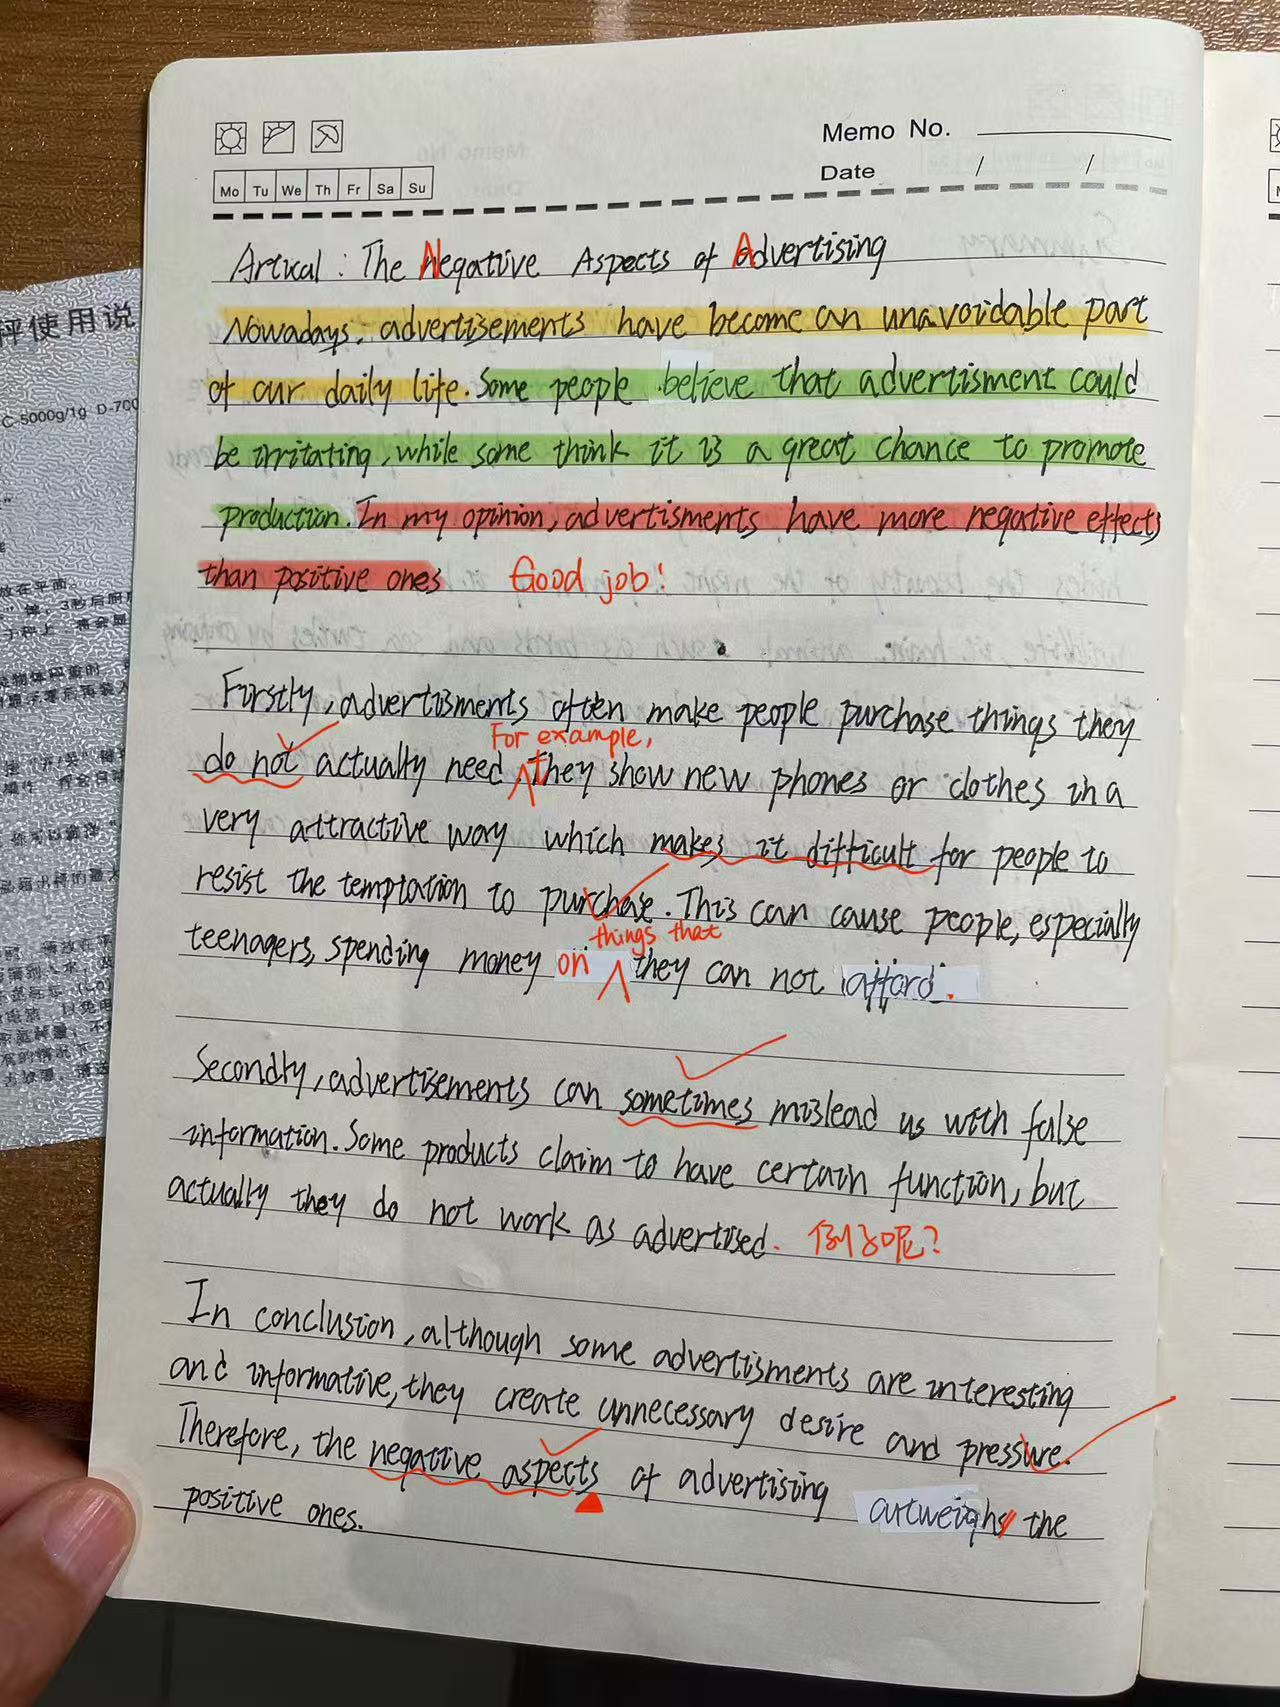 Memo No.
Date / /
Mo Tu We Th Fr Sa Su
Artical : The Negative Aspects of Advertising
Nowadays, advertisements have become an unavoidable part
of our daily life. Some people believe that advertisment could
be irritating, while some think it is a great chance to promote
production. In my opinion, advertisments have more negative effects
than positive ones Good job!
Firstly, advertisments often make people purchase things they
For example,
do not actually need. They show new phones or clothes in a
very attractive way which makes it difficult for people to
resist the temptation to purchase. This can cause people, especially
things that
teenagers, spending money on they can not afford.
Secondly, advertisements can sometimes mislead us with false
information. Some products claim to have certain function, but
actually they do not work as advertised. 例子呢?
In conclusion, although some advertisments are interesting
and informative, they create unnecessary desire and pressure.
Therefore, the negative aspects of advertising outweigh the
positive ones.
秤使用说
C-5000g/1g D-700
放在平面。